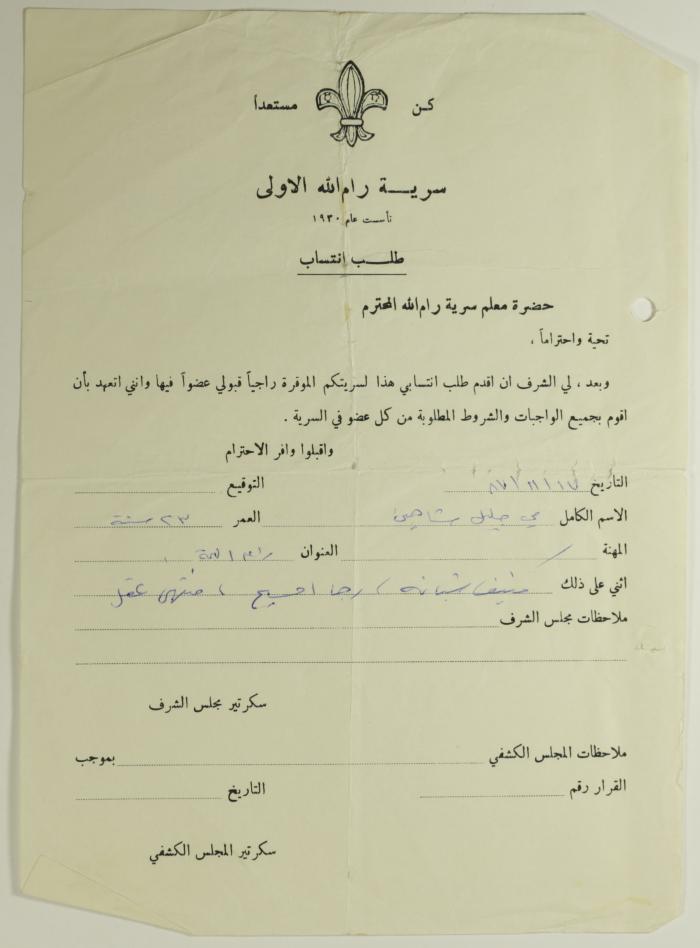 كن مستعداً
سرية رام الله الاولى
تأسست عام ١٩٣٠
طلب انتساب
حضرة معلم سرية رام الله المحترم
تحية واحتراماً ،
وبعد ، لي الشرف ان اقدم طلب انتسابي هذا لسريتكم الموقرة راجياً قبولي عضواً فيها وانني اتعهد بأن
اقوم بجميع الواجبات والشروط المطلوبة من كل عضو في السرية .
واقبلوا وافر الاحترام
التاريخ التوقيع
الاسم الكامل مي جليل شاهين العمر ٢٣ سنة
المهنة / العنوان رام الله
اثني على ذلك
ملاحظات مجلس الشرف
سكرتير مجلس الشرف
ملاحظات المجلس الكشفي بموجب
القرار رقم التاريخ
سكرتير المجلس الكشفي